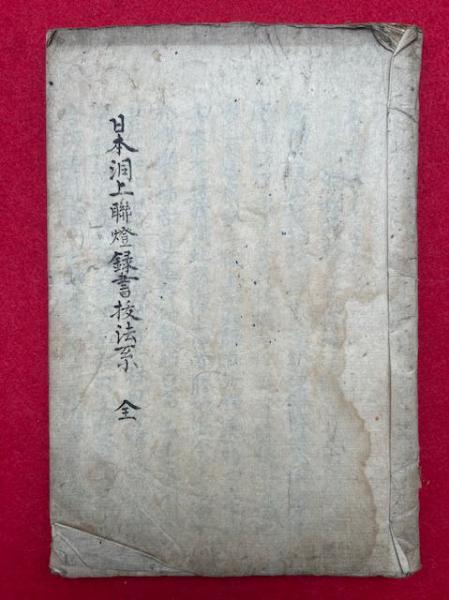 日本洞上聯燈録書抜法系 全